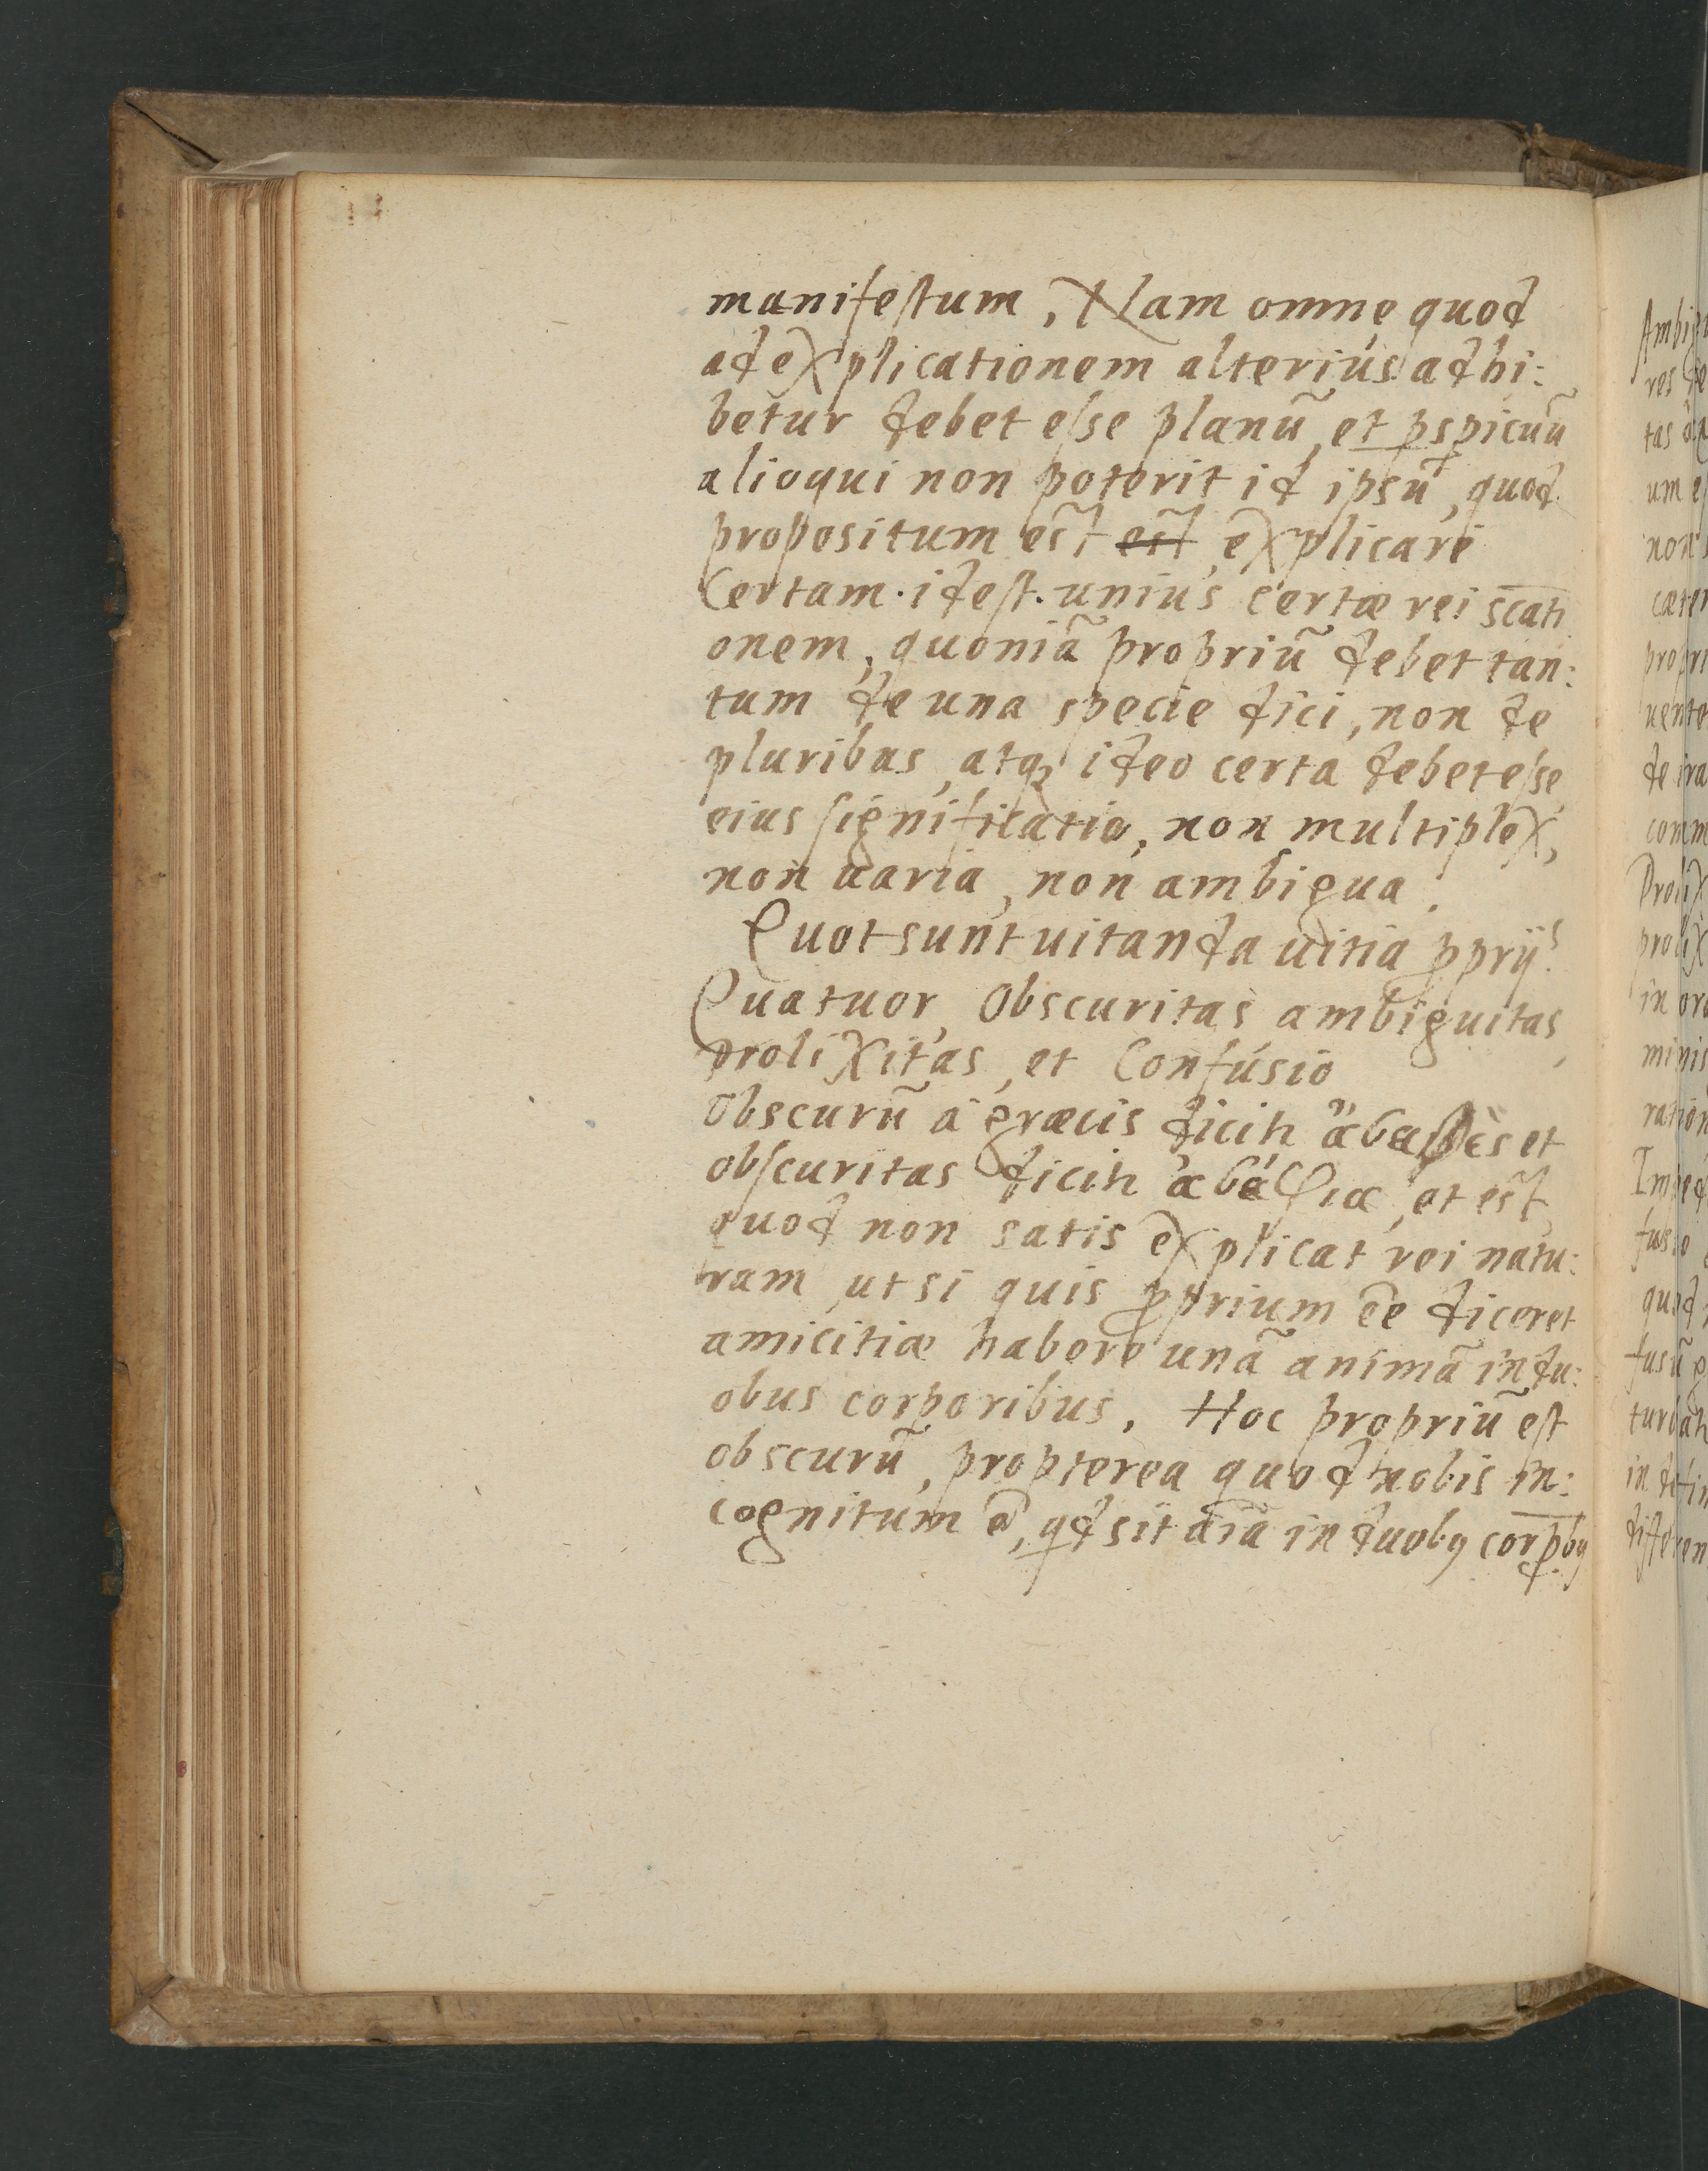 manifestum, Nam omne quod
ad explicationem alterius adhi:
betur debet esse planũ, et p̱spicuũ
alioqui non poterit id ipsũ, quod
propositum est est explicari
Certam. idest. unius certæ rei s̄cati
onem, quoniã propriũ debet tan:
tum de una specie dici, non de
pluribus, atq; ideo certa debet esse
eius significatio, non multiplex,
non uaria, non ambigua.
Quot sunt uitanda uitia ꝓprij?
Quatuor, Obscuritas ambiguitas,
prolixitas, et Confusio
Obscurũ a græcis dicitꝛ et
obscuritas dicitꝛ et est,
quod non satis explicat rei natu:
ram, ut si quis ꝓprium ẽe diceret
amicitiæ habere unã animã in du:
obus corporibus. Hoc propriũ est
obscurũ, propterea quod nobis in:
cognitum ẽ, qd sit aĩa in duobꝰ corp̱bꝰ
Ambi
res de
tas
um e
non s
cæter
propri
uente
de ira
comm
Prolix
prolix
in ora
minis
ration
Imped
fusio
quod
fusũ
turbatꝛ
in defin
differen